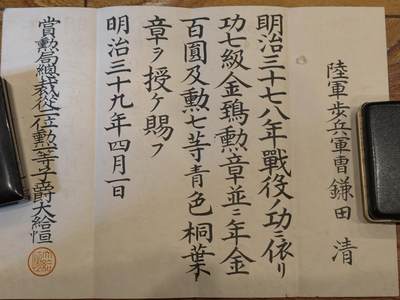 陸軍歩兵軍曹鎌田清
明治三十七八年戰役ノ功ニ依リ
功七級金鵄勲章並ニ年金
百圓及勲七等青色桐葉
章ヲ授ケ賜フ
明治三十九年四月一日
賞勲局總裁從二位勲一等子爵大給恒